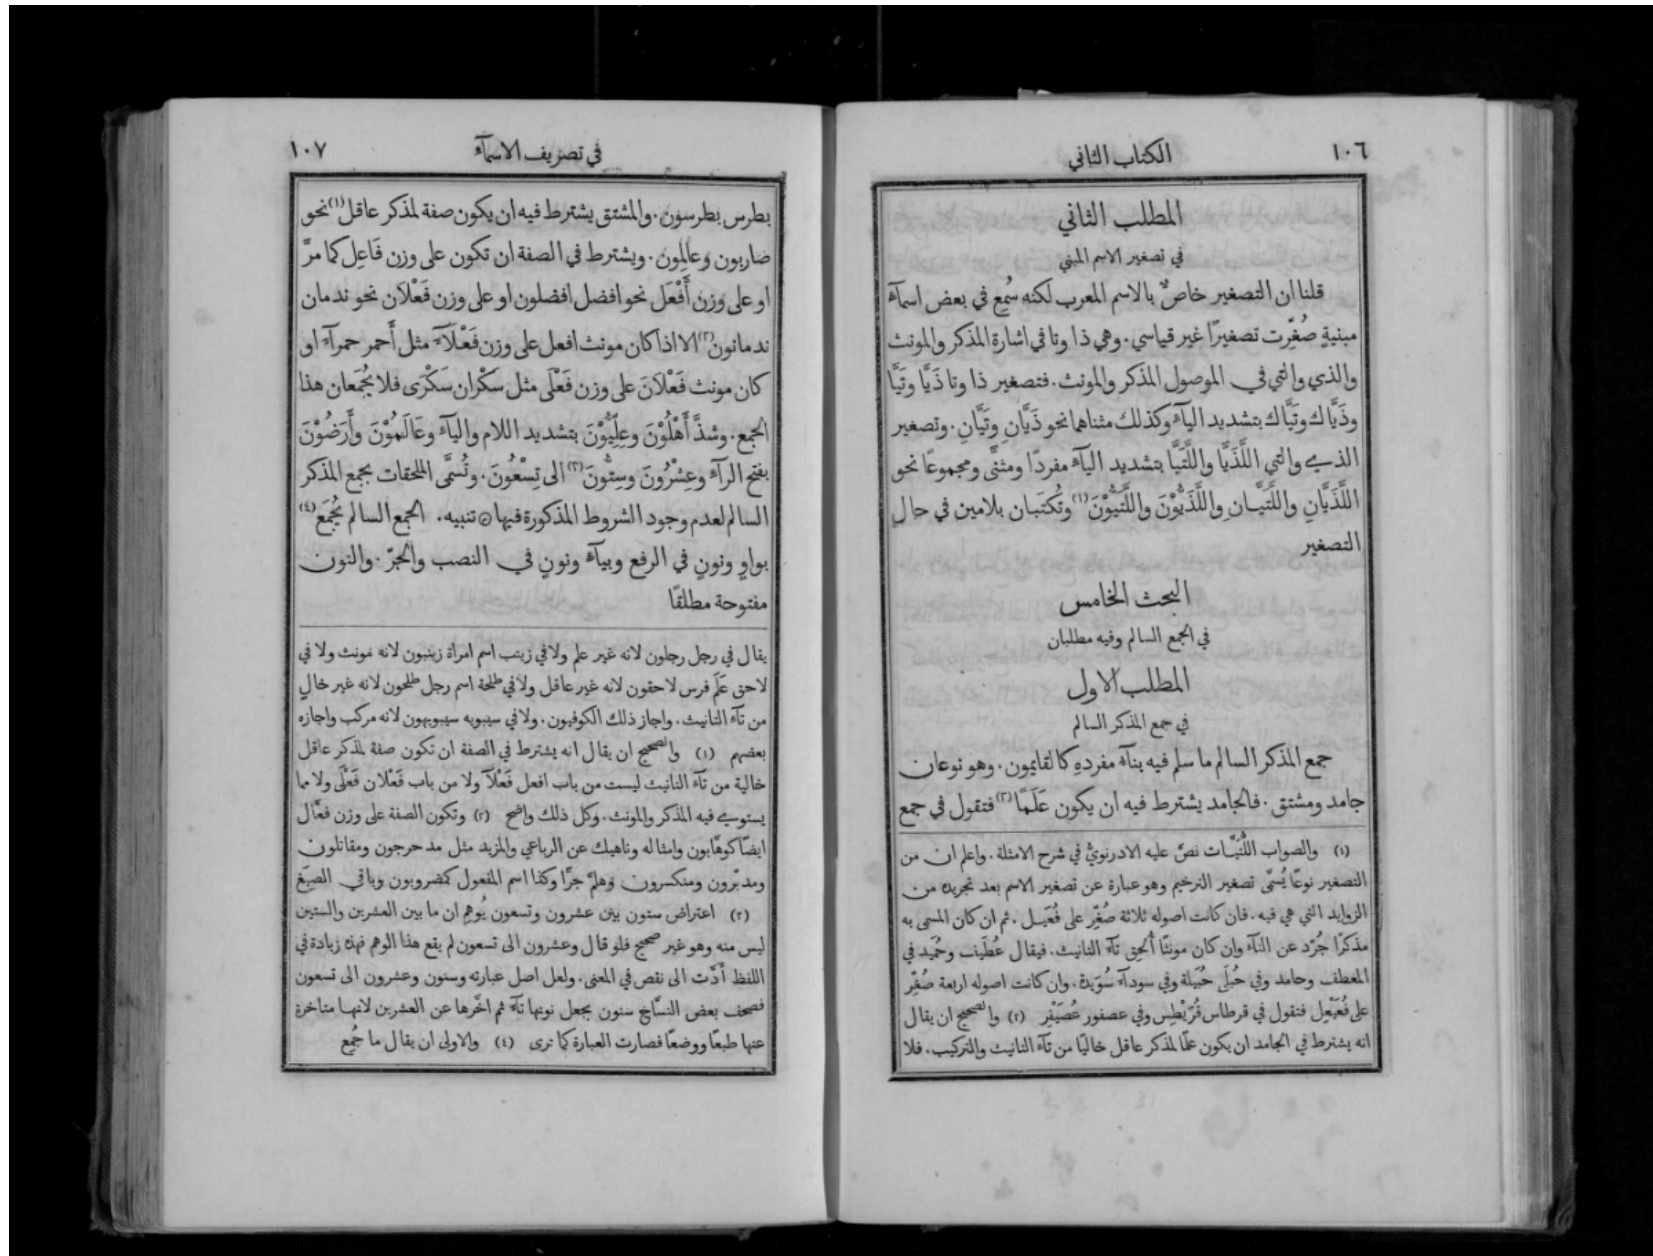 ١٠٦
الكتاب الثاني
المطلب الثاني
في تصغير الاسم المبني
قلنا ان التصغير خاصٌ بالاسم المعرب لكنه سُمِع في بعض اسمآء
مبنيةٍ صُغِّرت تصغيرًا غير قياسي. وهي ذا وتا في اشارة المذكر والمونث
والذي والتي في الموصول المذكر والمونث. فتصغير ذا وتا ذَيَّا وتَيَّا
وذَيَّاك وتَيَّاك بتشديد اليآء وكذلك مثناهما نحو ذَيَّانِ وتَيَّانِ. وتصغير
الذي والتي اللَّذَيَّا واللَّتَيَّا بتشديد اليآء مفردًا ومثنًّى ومجموعًا نحو
اللَّذَيَّانِ واللَّتَيَّــانِ واللَّذَيُّوْنَ واللَّتَيُّوْنَ (١) وتُكتَبـان بلامين في حالِ
التصغير
البحث الخامس
في الجمع السالم وفيه مطلبان
المطلب الاول
في جمع المذكر السالم
جمع المذكر السالم ما سلم فيه بنآء مفردهِ كالقايمون. وهو نوعان
جامد ومشتق. فالجامد يشترط فيه ان يكون عَلَمًا (٢) فتقول في جمع
(١) والصواب اللُّتَيّــات نصَّ عليه الادرنويُّ في شرح الامثلة. واعلم ان من
التصغير نوعًا يُسمَّى تصغير الترخيم وهو عبارة عن تصغير الاسم بعد تجريدهِ من
الزوايد التي هي فيه. فان كانت اصوله ثلاثة صُغِّر على فُعَيــل. ثم ان كان المسمى به
مذكرًا جُرّد عن التآء وان كان مونثًا أُلحِق تآء التانيث. فيقال عُطَيف وحُمَيد في
المعطف وحامد وفي حُبلَى حُبَيلة وفي سودآء سُوَيدة. وان كانت اصوله اربعة صُغِّر
على فُعَيْعِل فتقول في قرطاس قُرَيْطِس وفي عصفور عُصَيْفِر (٢) والصحيح ان يقال
انه يشترط في الجامد ان يكون علمًا لمذكر عاقل خاليًا من تآء التانيث والتركيب. فلا
في تصريف الاسمآء
١٠٧
بطرس بطرسون. والمشتق يشترط فيه ان يكون صفة لمذكر عاقل (١) نحو
ضاربون وعالِمون. ويشترط في الصفة ان تكون على وزن فَاعِل كما مرَّ
او على وزن أَفْعَل نحو افضل افضلون او على وزن فَعْلاَن نحو ندمان
ندمانون (٢) الا اذا كان مونث افعل على وزن فَعْلَآءَ مثل أَحمر حمرآءَ او
كان مونث فَعْلاَنَ على وزن فَعْلَى مثل سَكْران سَكْرَى فلا يُجْمَعان هذا
الجمع. وشذَّ أَهْلُوْنَ وعِلِّيُّوْنَ بتشديد اللام واليآء وعَالَمُوْنَ وأَرَضُوْنَ
بفتح الرآء وعِشْرُونَ وسِتُّونَ (٣) الى تِسْعُونَ. وتُسَمَّى الملحقات بجمع المذكر
السالم لعدم وجود الشروط المذكورة فيها ۞ تنبيه. الجمع السالم يُجْمَع (٤)
بواوٍ ونونٍ في الرفع وبيآءٍ ونونٍ في النصب والجرّ. والنون
مفتوحة مطلقًا
يقال في رجل رجلون لانه غير علم ولا في زينب اسم امراة زينبون لانه مونث ولا في
لاحق عَلَم فرس لاحقون لانه غير عاقل ولا في طلحة اسم رجل طلحون لانه غير خالٍ
من تآء التانيث. واجاز ذلك الكوفيون. ولا في سيبويه سيبويهون لانه مركب واجازه
بعضهم (١) والصحيح ان يقال انه يشترط في الصفة ان تكون صفة لمذكر عاقل
خالية من تآء التانيث ليست من باب افعل فَعْلآَء ولا من باب فَعْلان فَعْلَى ولا مما
يستوي فيه المذكر والمونث. وكل ذلك واضح (٢) وتكون الصفة على وزن فعَّال
ايضًا كوهَّابون وامثاله وناهيك عن الرباعي والمزيد مثل مدحرجون ومقاتلون
ومدبّرون ومنكسرون وهلمَّ جرًّا وكذا اسم المفعول كمضروبون وباقي الصِيَغ
(٣) اعتراض ستون بين عشرون وتسعون يُوهِم ان ما بين العشرين والستين
ليس منه وهو غير صحيح فلو قال وعشرون الى تسعون لم يقع هذا الوهم فهذه زيادة في
اللفظ أَدَّت الى نقص في المعنى. ولعل اصل عبارته وسنون وعشرون الى تسعون
فصحف بعض النسَّاخ سنون بجعل نونها تآءً ثم اخَّرها عن العشرين لانهـا متاخرة
عنها طبعًا ووضعًا فصارت العبارة كما ترى (٤) والاولى ان يقال ما جُمِع